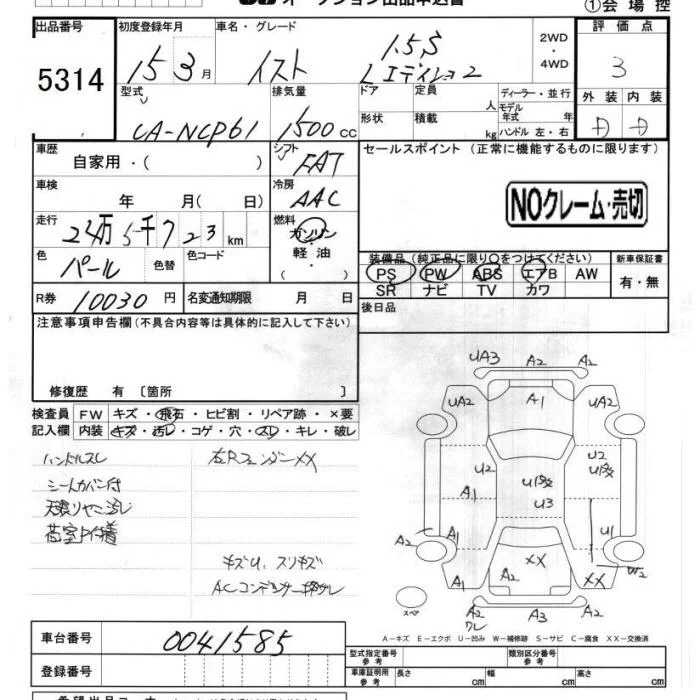 オークション出品申込書 ①会場控
出品番号 初度登録年月 車名・グレード 2WD・4WD 評価点
5314 15 3月 イスト 1.5S Lエディション2 3
型式 排気量 ドア 定員 人 ディーラー・並行 外装 内装
UA-NCP61 1500cc 形状 積載 kg モデル年式 年 ハンドル 左・右 D D
車歴 シフト セールスポイント(正常に機能するものに限ります)
自家用・( ) FAT
車検 冷房
年 月( 日) AAC NOクレーム・売切
走行 燃料
23万5千723km ガソリン・軽油・( )
色 色替 色コード 装備品(純正品に限り○をつけてください) 新車保証書
パール PS PW ABS エアB AW 有・無
SR ナビ TV カワ
R券 10030円 名変通知期限 月 日 後日品
注意事項申告欄(不具合内容等は具体的に記入して下さい)
修復歴 有〔箇所 〕
検査員 FW キズ・飛石・ヒビ割・リペア跡・×要
記入欄 内装 キズ・汚レ・コゲ・穴・スレ・キレ・破レ
ハンドルスレ 左Rフェンダーxx
シートカバー付
天張リヤニ汚レ
荷室P付着
キズU、スリキズ
ACコンデンサー
UA3 A2 A2
UA2 A1 UA2
U2 U2
A1 U3
A2 A1 U1
XX W2
A1 A2 XX
スペア A2 ワレ A3 A2
A-キズ E-エクボ U-凹み W-補修跡 S-サビ C-腐食 XX-交換済
車台番号 0041585
登録番号
型式指定番号 参考 類別区分番号 参考
車庫証明用 参考 長さ cm 幅 cm 高さ cm
希望出品コーナー